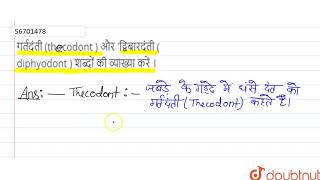 56701478
गर्तदंती (thecodont ) और 'द्विबारदंती (
diphyodont ) शब्दों की व्याख्या करें ।
Ans: — Thecodont: - जबड़े के गड्ढे मे धंसे दंत को
गर्तदंती (Thecodont) कहते हैं।
doubtnut